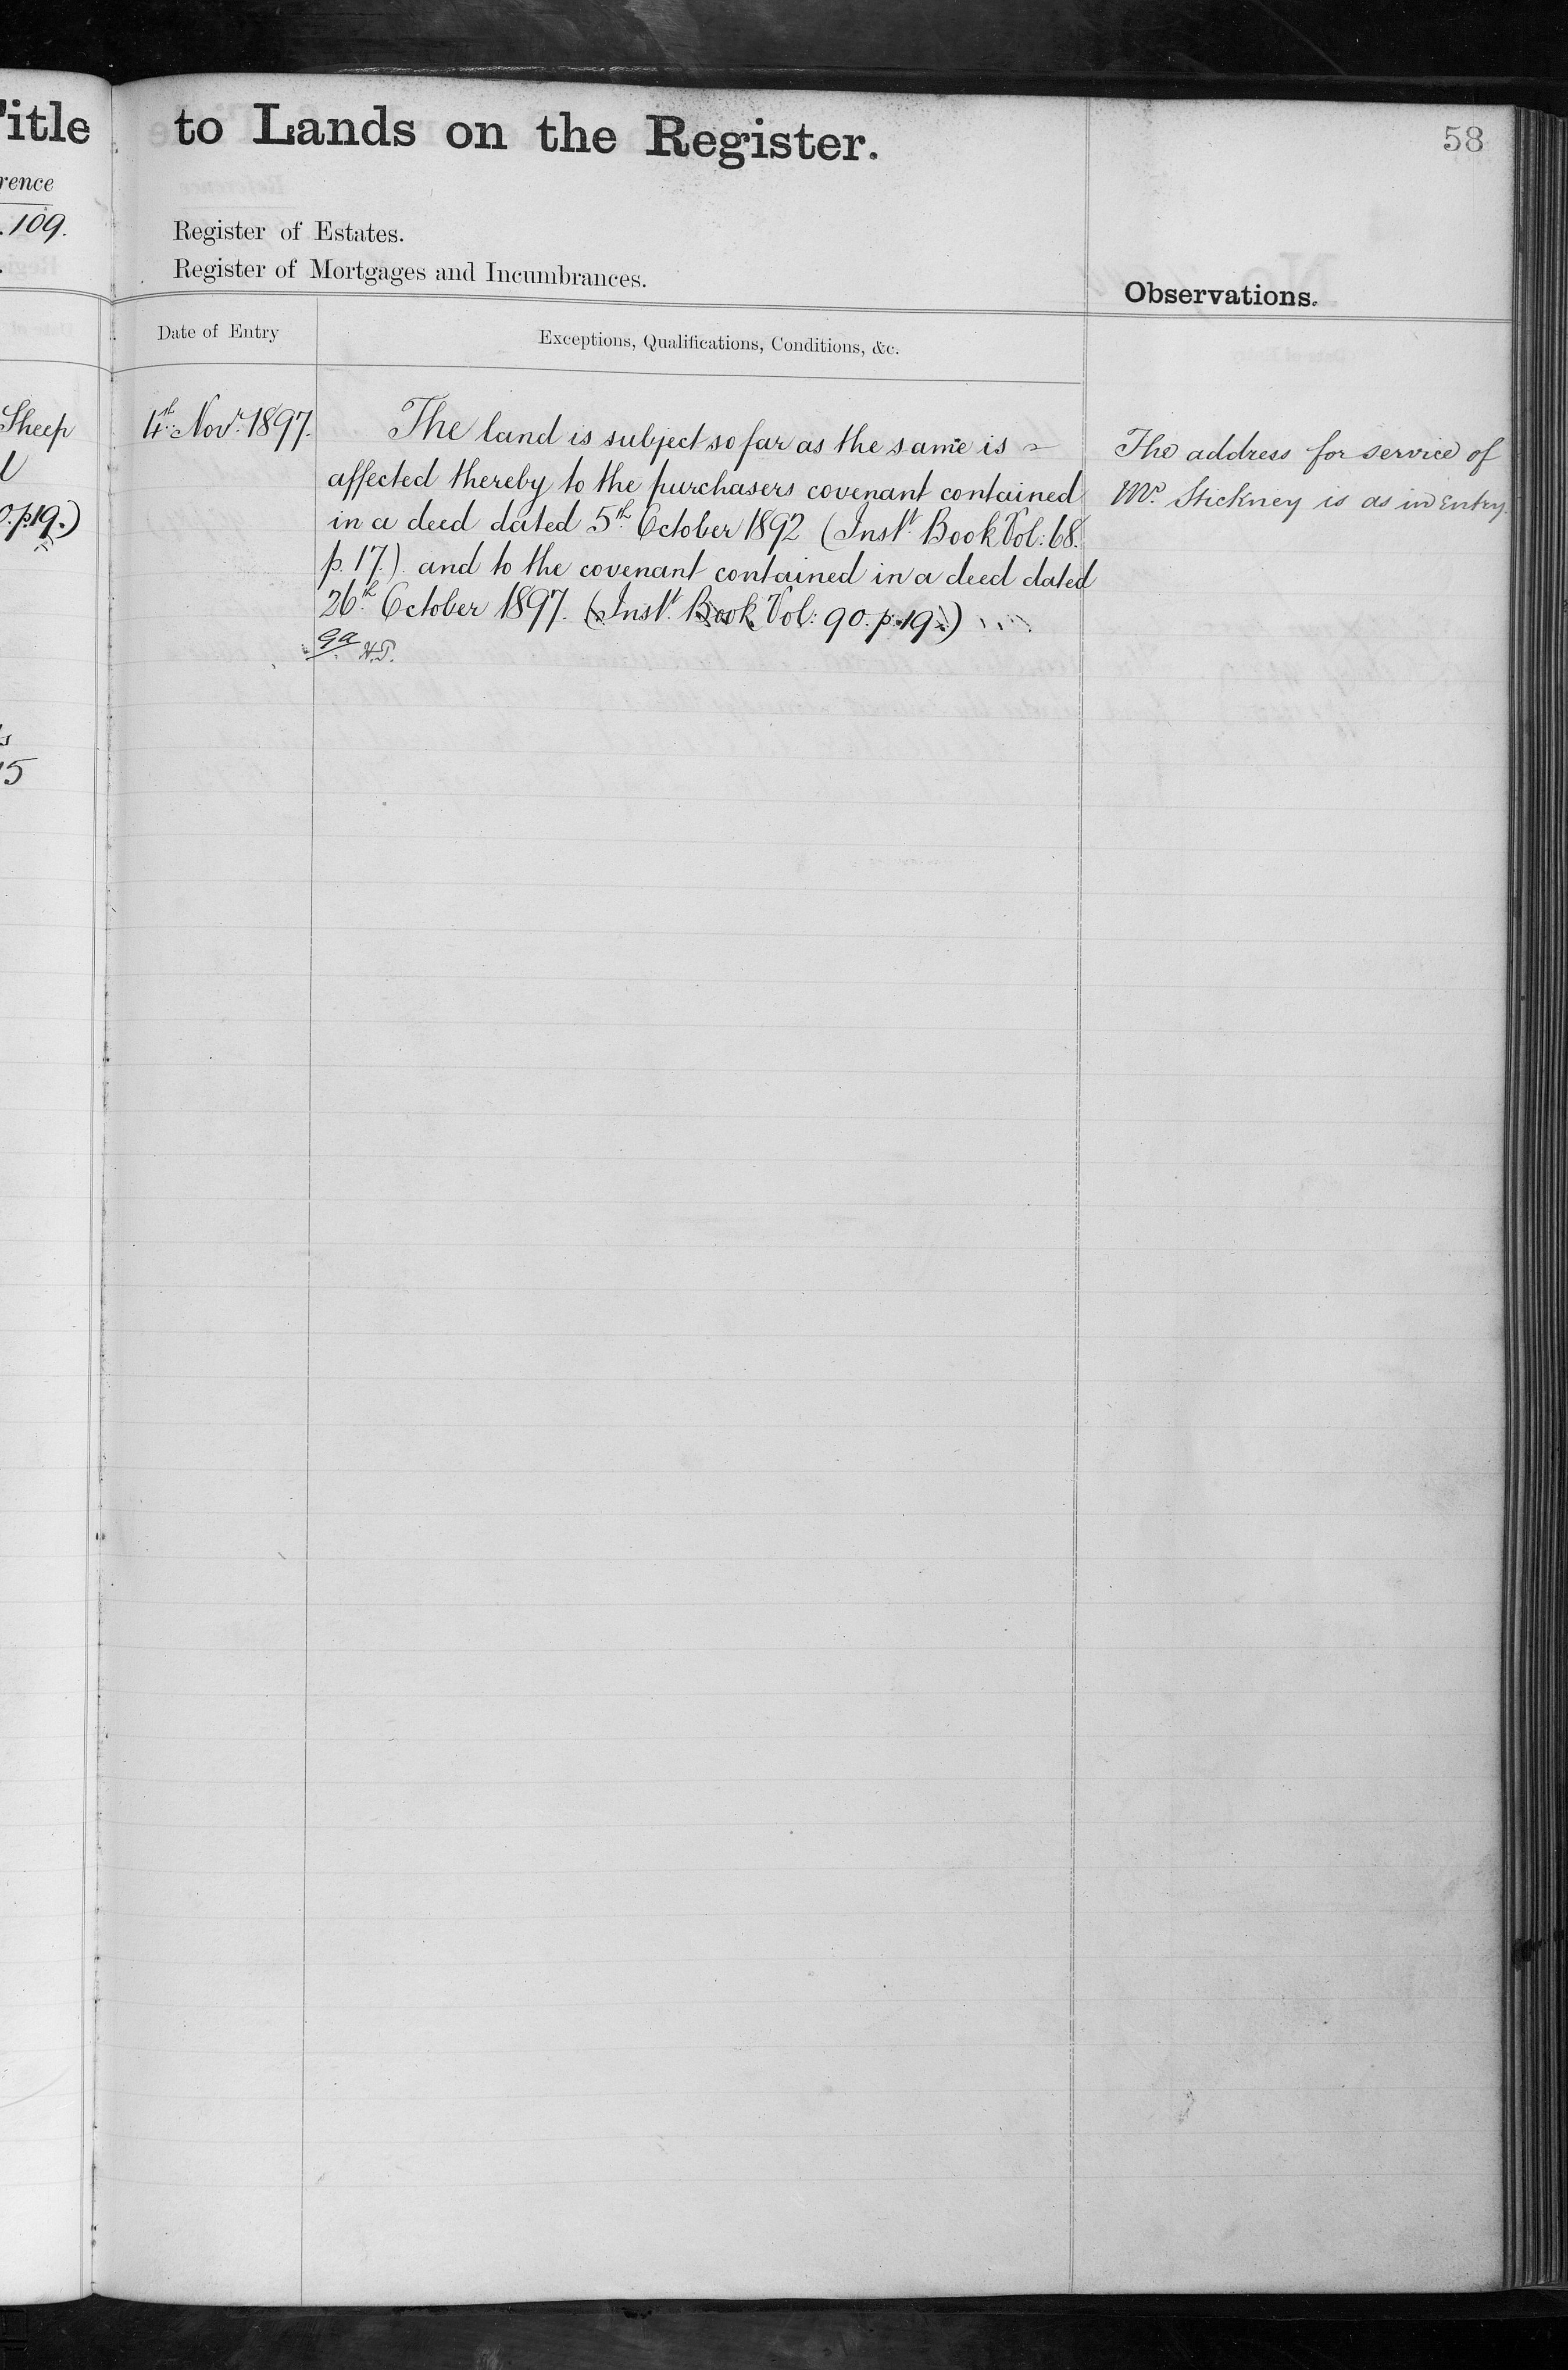 Title
to Lands on the Register.
58
rence
.109.
Register of Estates.
Register of Mortgages and Incumbrances.
Observations.
Date of Entry
Exceptions, Qualifications, Conditions, &c.
Sheep
0.p.19.)
15
4th Novr. 1897.
The land is subject so far as the same is
affected thereby to the purchasers covenant contained
in a deed dated 5th October 1892 (Inst. Book Vol: 68.
p. 17.) and to the covenant contained in a deed dated
26th October 1897. (Inst. Book Vol: 90. p. 19.)
H.T.
The address for service of
Mr. Stickney is as in Entry